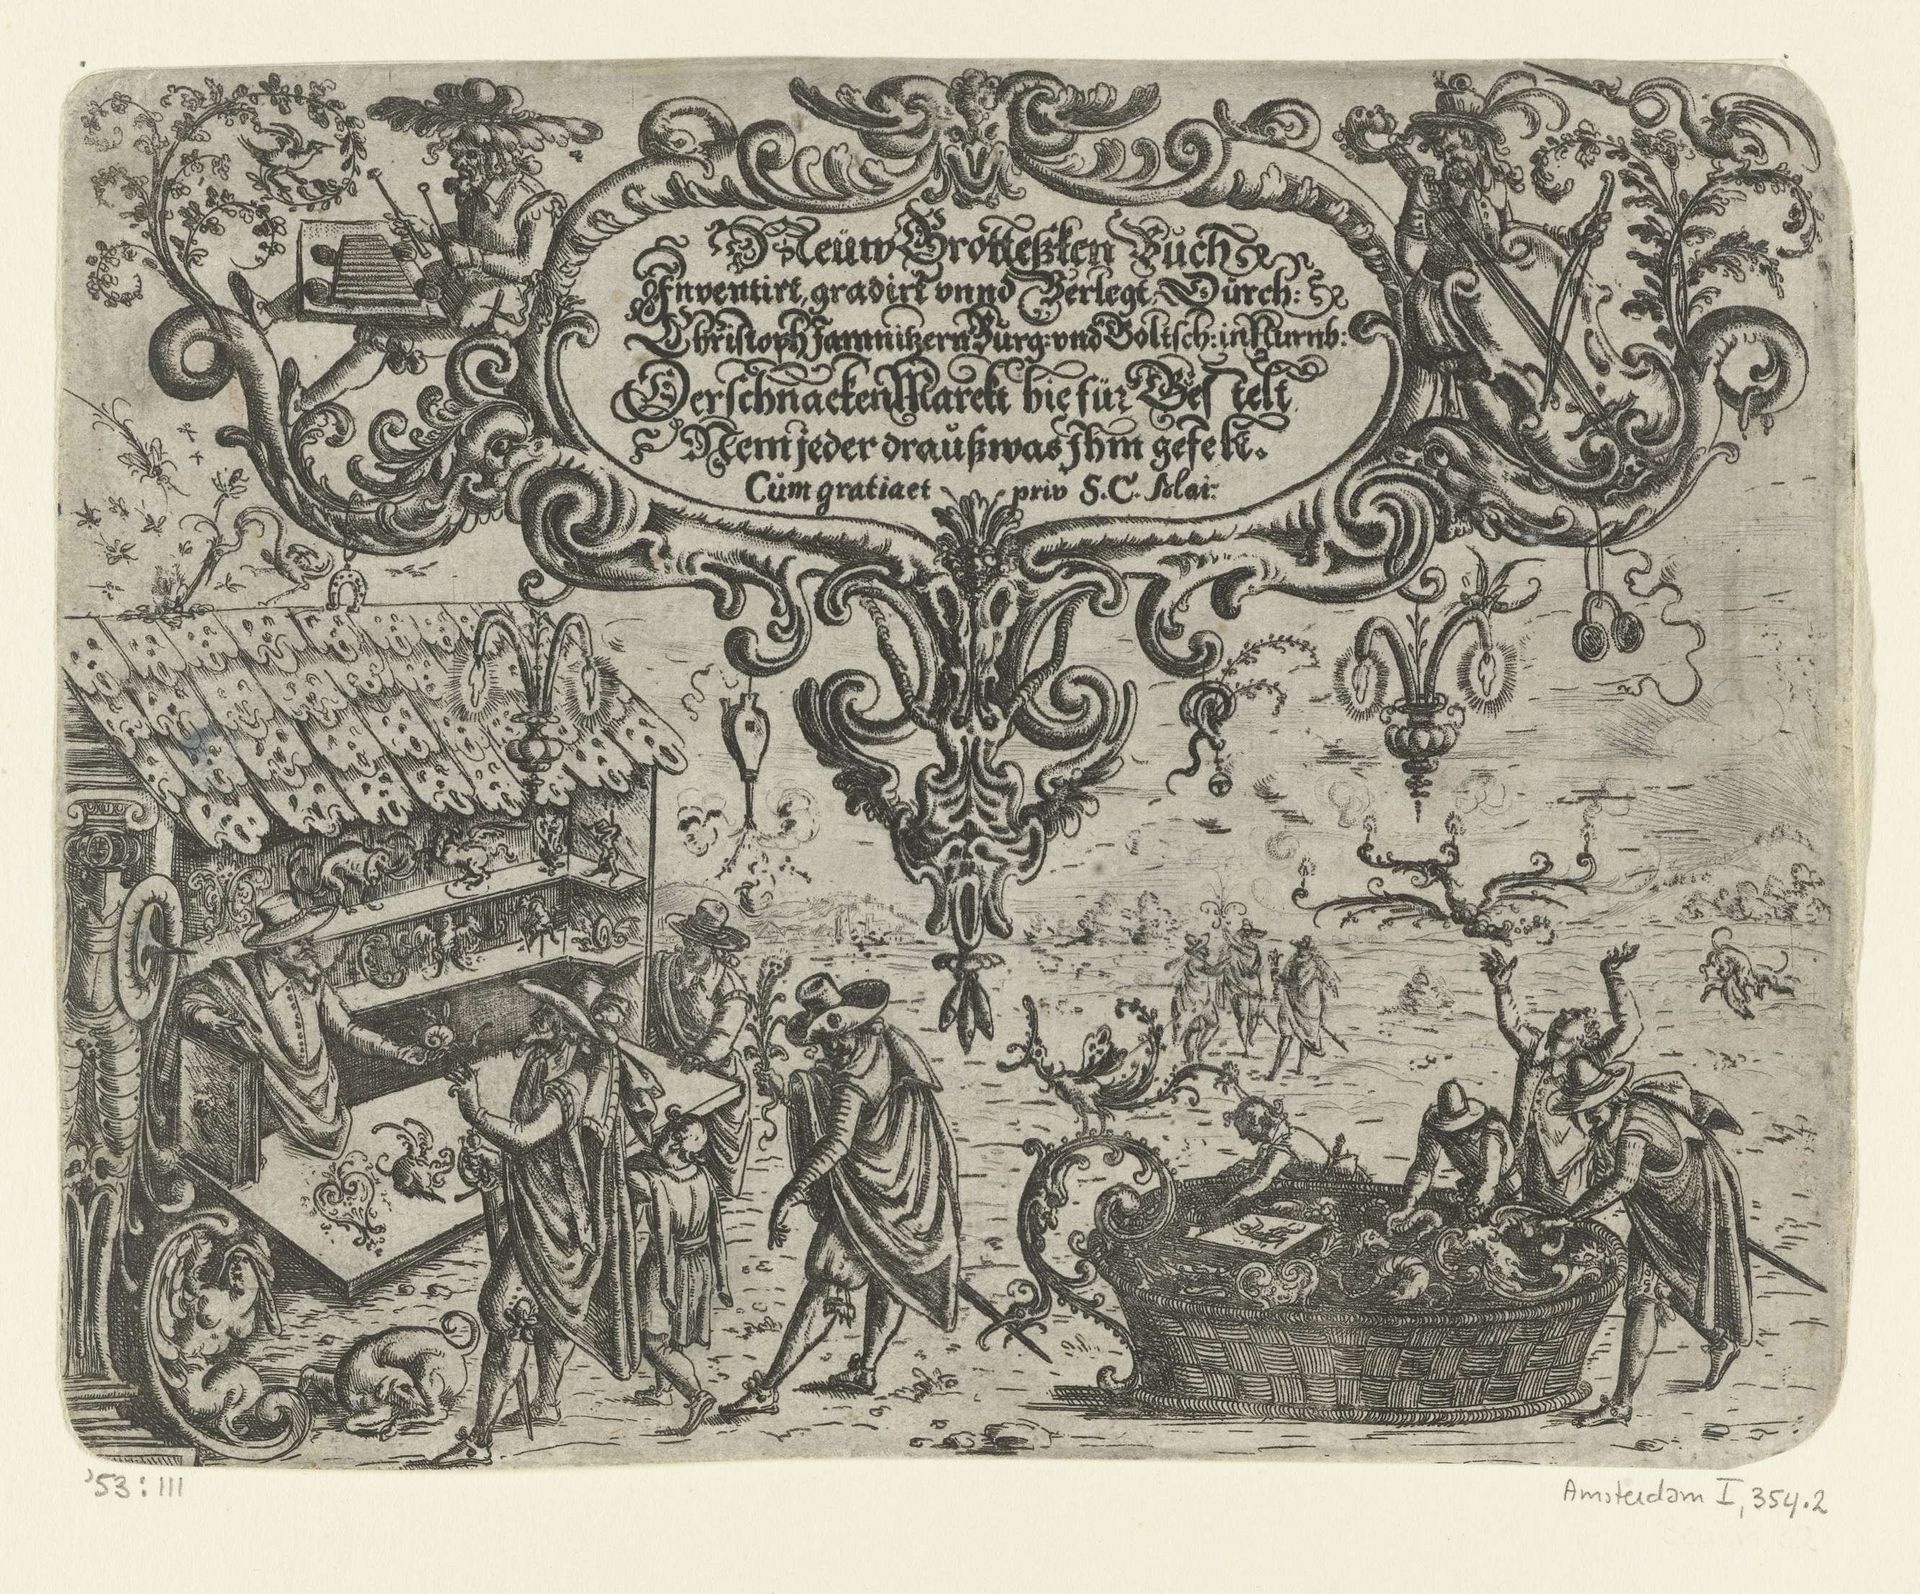 Neüw Grotteßken Buch
Inventirt, gradirt vnnd Verlegt, Durch:
Christoph Jamnitzern Burg: vnd Goltsch: in Nurnb:
Der schnacken Marckt hie für Gestelt
Nem jeder drauß was Ihm gefelt.
Cum gratia et priv S. C. Mai:
'53:111
Amsterdam I, 354.2